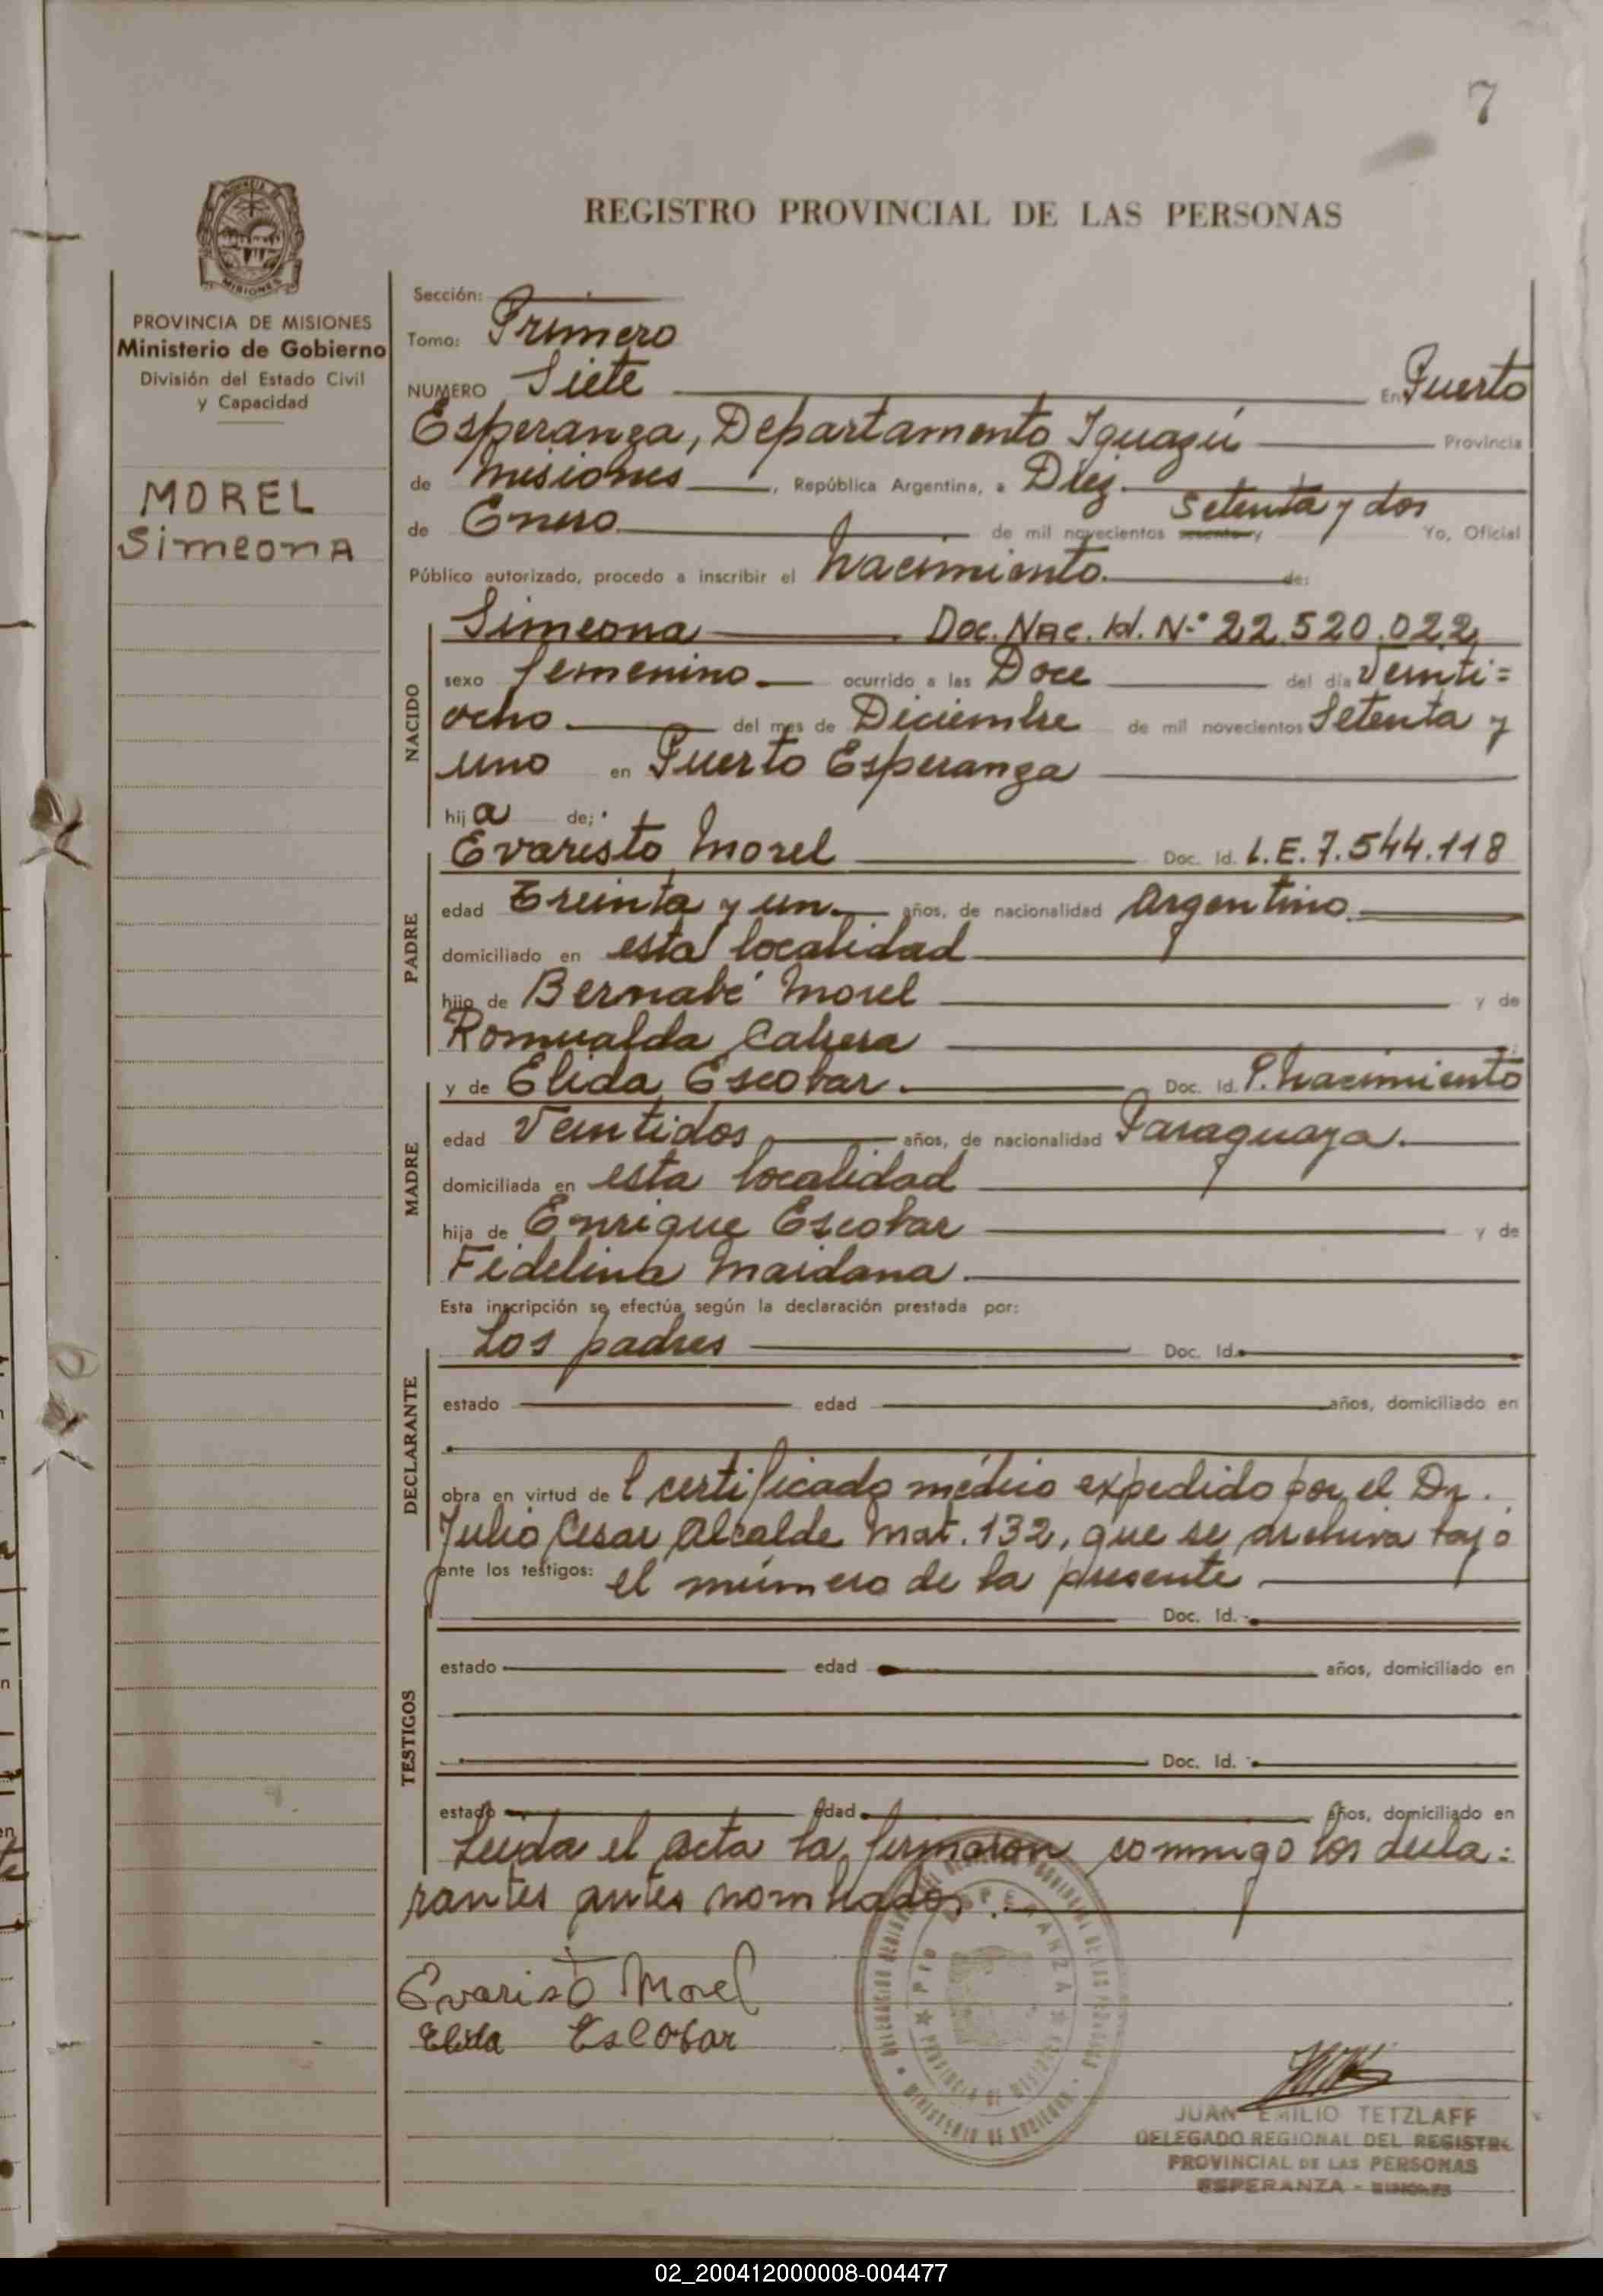 7
REGISTRO PROVINCIAL DE LAS PERSONAS
PROVINCIA DE MISIONES
Ministerio de Gobierno
División del Estado Civil
y Capacidad
MOREL
Simeona
Sección:
Tomo: Primero
NUMERO Siete En Puerto
Esperanza, Departamento Iguazú Provincia
de Misiones, República Argentina, a Diez
de Enero de mil novecientos sesenta y setenta y dos Yo, Oficial
Público autorizado, procedo a inscribir el Nacimiento. de:
NACIDO
Simeona Doc. Nac. Id. N° 22.520.022
sexo femenino ocurrido a las Doce del día veinti=
ocho del mes de Diciembre de mil novecientos setenta y
uno en Puerto Esperanza
hija de:
PADRE
Evaristo Morel Doc. Id. L.E. 7.544.118
edad Treinta y un años, de nacionalidad Argentino.
domiciliado en esta localidad
hijo de Bernabé Morel y de
Romualda Cabrera
MADRE
y de Elida Escobar. Doc. Id. P. Nacimiento
edad Veintidos años, de nacionalidad Paraguaya.
domiciliada en esta localidad
hija de Enrique Escobar y de
Fidelina Maidana.
Esta inscripción se efectúa según la declaración prestada por:
DECLARANTE
Los padres Doc. Id.
estado edad años, domiciliado en
obra en virtud de l certificado médico expedido por el Dr.
Julio Cesar Alcalde Mat. 132, que se archiva bajo
ante los testigos: el número de la presente
TESTIGOS
Doc. Id.
estado edad años, domiciliado en
Doc. Id.
estado edad años, domiciliado en
Leida el acta la firmaron conmigo los decla=
rantes antes nombrados.
Evaristo Morel
Elida Escobar
JUAN EMILIO TETZLAFF
DELEGADO REGIONAL DEL REGISTRO
PROVINCIAL DE LAS PERSONAS
ESPERANZA - MISIONES
02_200412000008-004477